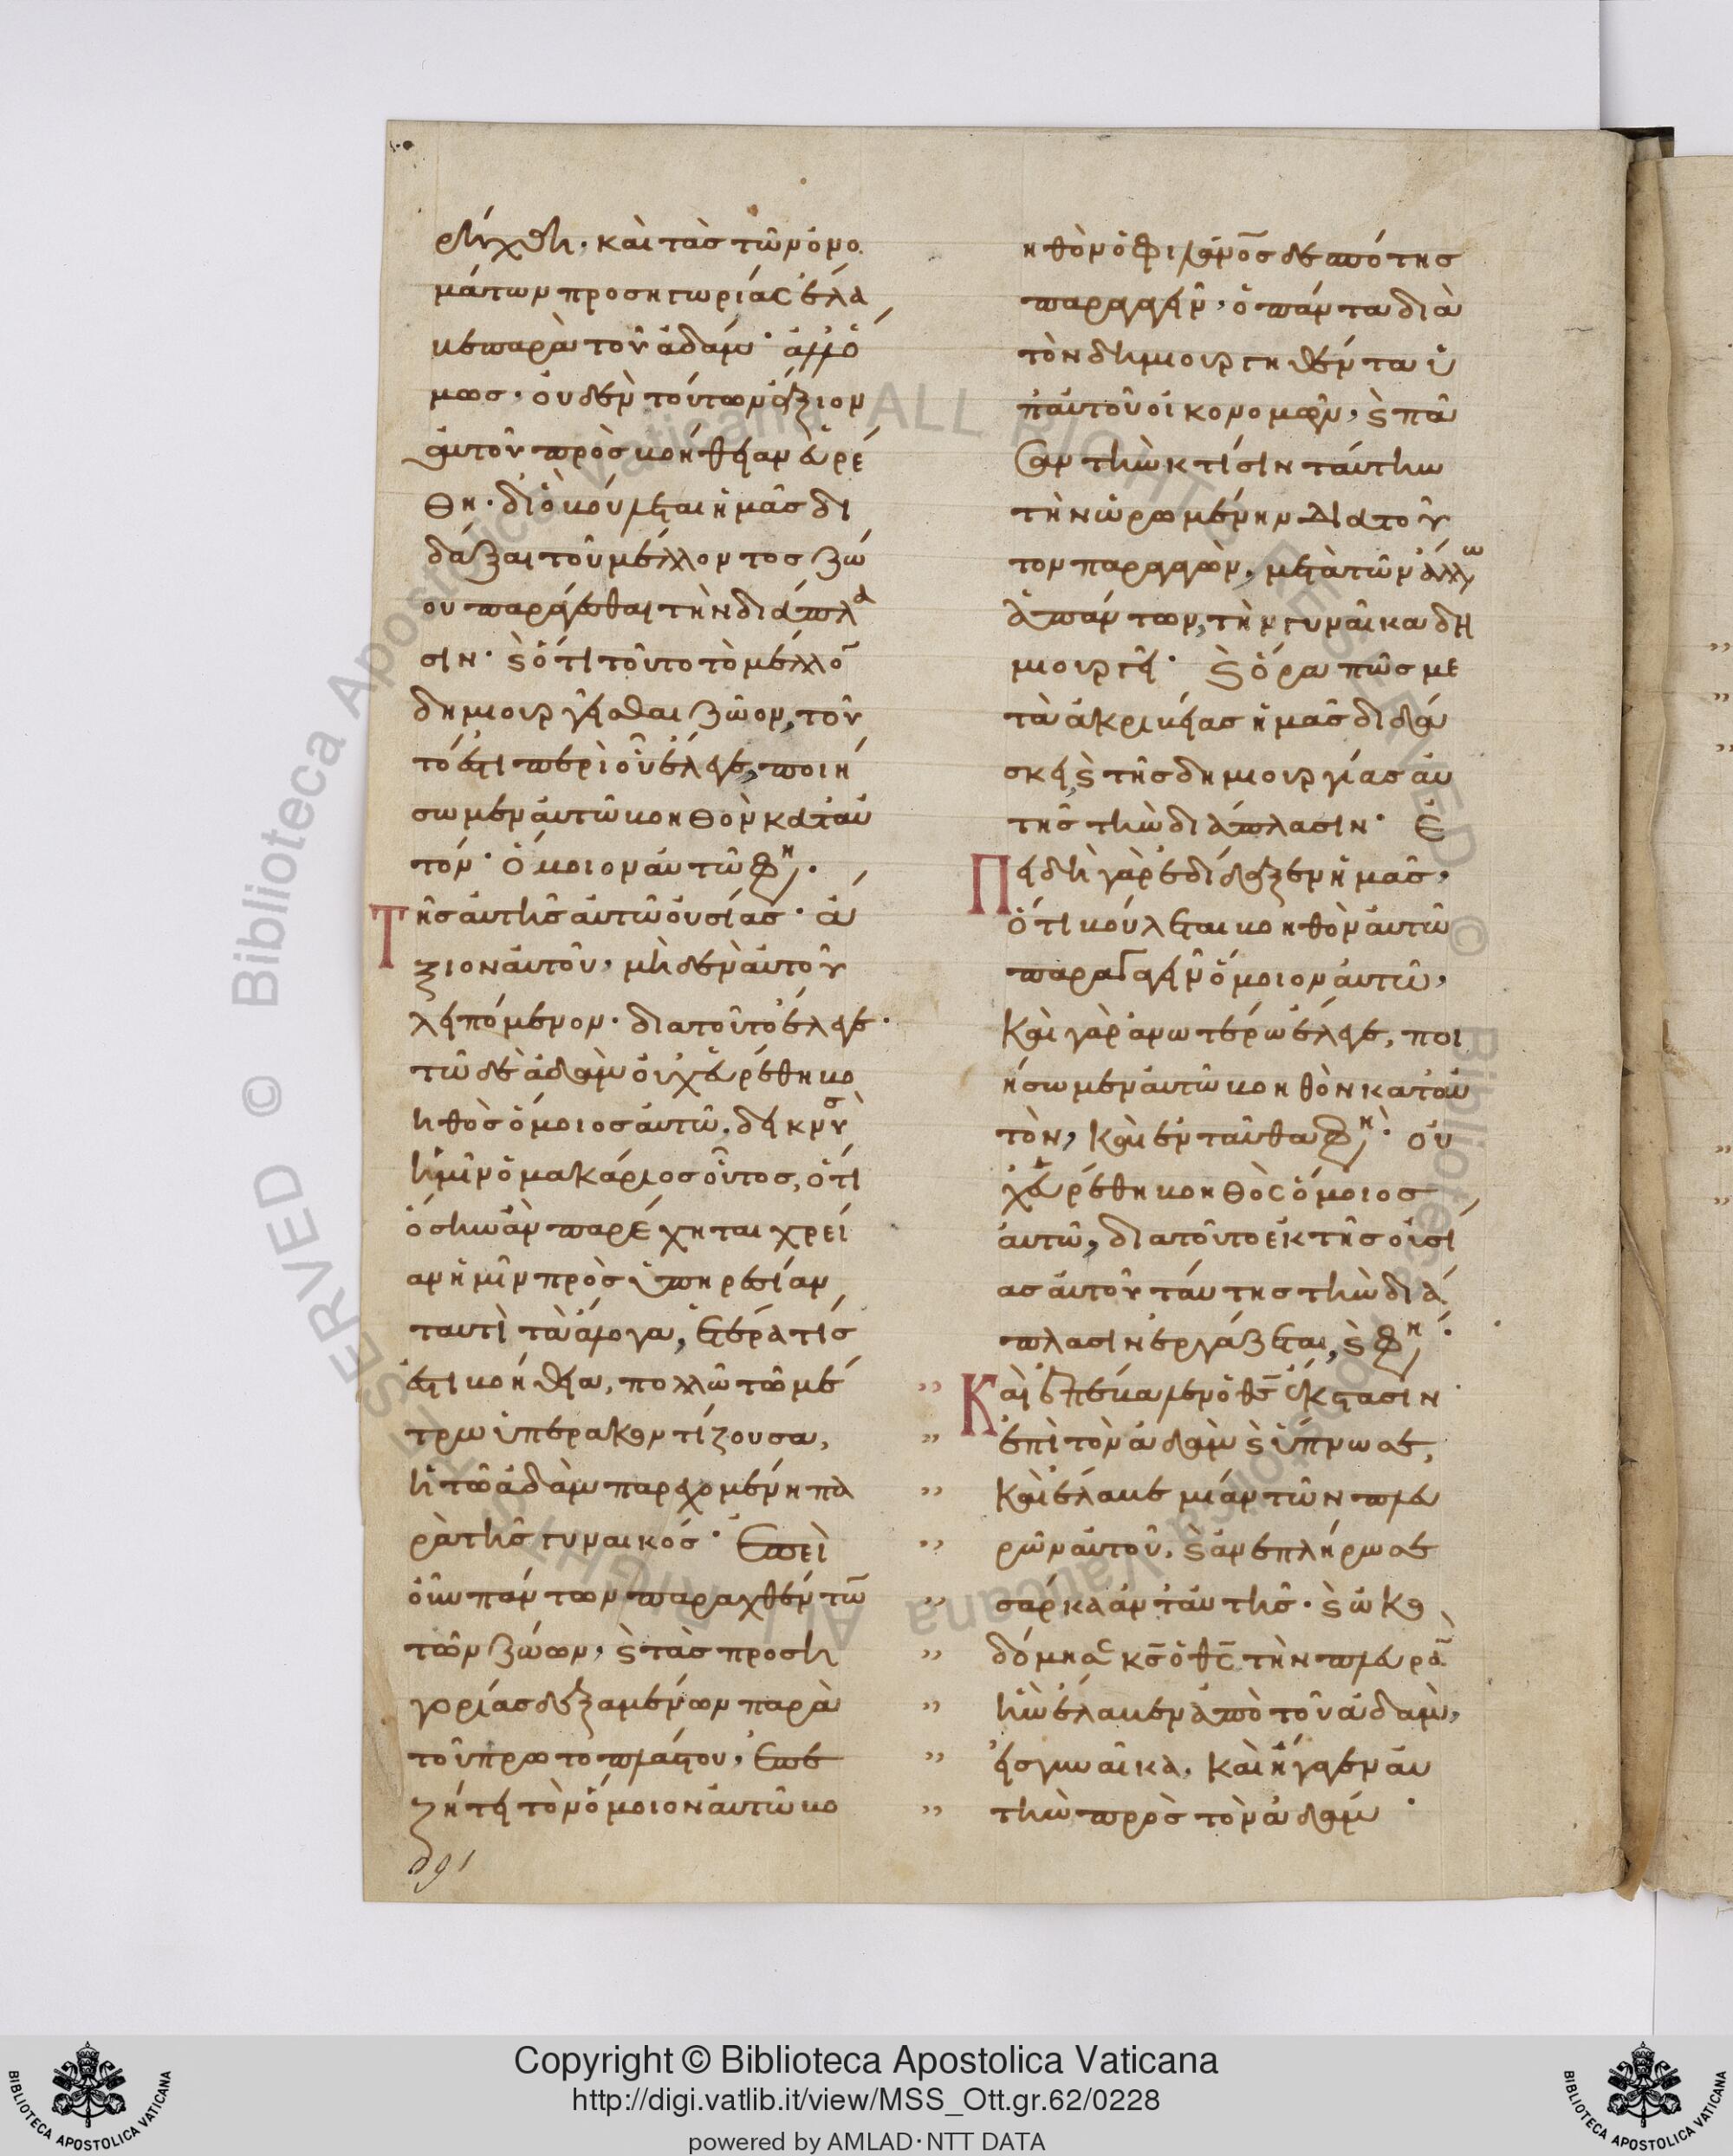 ρήχθη, καὶ τὰς τῶν ὀνο
μάτων προσηγορίας ἔλα
βε παρὰ τοῦ ἀδάμ· ἀλλ' ὅ
μως· οὐδὲν τούτων ἄξιον
αὐτοῦ πρὸς βοήθειαν εὑρέ
θη· διὸ βούλεται ἡμᾶς δι
δάξαι τοῦ μέλλοντος ζώ
ου παράγεσθαι τὴν διάπλα
σιν· καὶ ὅτι τοῦτο τὸ μέλλον
δημιουργεῖσθαι ζῶον, τοῦ
τό ἐστι περὶ οὗ ἔλεγε, ποιή
σωμεν αὐτῶ βοηθὸν κατ' αὐ
τόν· ὅμοιον αὐτῶ φη·
Τῆς αὐτῆς αὐτῶ οὐσίας· ἄ
ξιον αὐτοῦ, μηδὲν αὐτοῦ
λειπόμενον· διὰ τοῦτο ἔλεγε·
τῶ δὲ ἀδὰμ οὐχ εὑρέθη βο
ηθὸς ὅμοιος αὐτῶ. δεικνὺς
ἡμῖν ὁ μακάριος οὗτος, ὅτι
ὅσην ἂν παρέχηται χρεί
αν ἡμῖν πρὸς ὑπηρεσίαν
ταυτὶ τὰ ἄλογα, ἑτέρα τίς
ἐστι βοήθεια, πολλῶ τῶ μέ
τρω ὑπερακοντίζουσα,
ἡ τῶ ἀδὰμ παρεχομένη πα
ρὰ τῆς γυναικός· Ἐπεὶ
οὖν πάντων παραχθέντων
τῶν ζώων, καὶ τὰς προση
γορίας δεξαμένων παρὰ
τοῦ πρωτοπλάστου, ἐπε
ζήτει τὸν ὅμοιον αὐτῶ βο
ηθὸν ὁ φιλάνος δεσπότης
παραγαγεῖν, ὁ πάντα διὰ
τὸν δημιουργηθέντα ὑ
π' αὐτοῦ οἰκονομῶν, καὶ πᾶ
σαν τὴν κτίσιν ταύτην
τὴν ὁρωμένην διὰ τοῦ
τον παραγαγὼν, μετὰ τῶν ἄλλων
ἁπάντων, τὴν γυναῖκα δη
μιουργεῖ· καὶ ὅρα πῶς με
τὰ ἀκριβείας ἡμᾶς διδά
σκει καὶ τῆς δημιουργίας αὐ
τῆς τὴν διάπλασιν· Ἐ
Πειδὴ γὰρ ἐδίδαξεν ἡμᾶς,
ὅτι βούλεται βοηθὸν αὐτῶ
παραγαγεῖν ὅμοιον αὐτῶ,
καὶ γὰρ ἀνωτέρω ἔλεγε, ποι
ήσωμεν αὐτῶ βοηθὸν κατ' αὐ
τὸν, καὶ ἐνταῦθα φη· οὐ
χ εὑρέθη βοηθὸς ὅμοιος
αὐτῶ, διὰ τοῦτο ἐκ τῆς οὐσί
ας αὐτοῦ ταύτης τὴν διά
πλασιν ἐργάζεται, καὶ φη·
Καὶ ἐπέβαλεν ὁ θς ἔκστασιν
ἐπὶ τὸν ἀδὰμ καὶ ὕπνωσε,
καὶ ἔλαβε μίαν τῶν πλευ
ρῶν αὐτοῦ, καὶ ἀνεπλήρωσε
σάρκα ἀντ' αὐτῆς· καὶ ὠκο
δόμησε κς ὁ θς τὴν πλευρὰν
ἣν ἔλαβεν ἀπὸ τοῦ ἀδὰμ,
εἰς γυναῖκα, καὶ ἤγαγεν αὐ
τὴν πρὸς τὸν ἀδάμ·
Copyright © Biblioteca Apostolica Vaticana
http://digi.vatlib.it/view/MSS_Ott.gr.62/0228
powered by AMLAD·NTT DATA